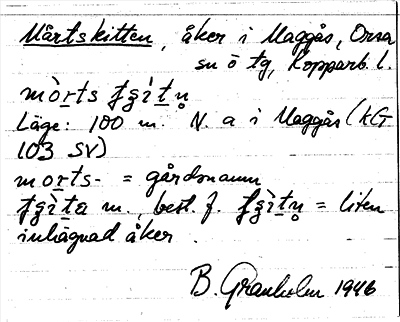 Mårtskitten, åker i Maggås, Orsa
sn o tg, Kopparb. l.
mòrts
Läge: 100 m. N. a i Maggås (KG
103 SV)
morts- = gårdsnamn
m., best. f. = liten
inhägnad åker.
B. Granholm 1946